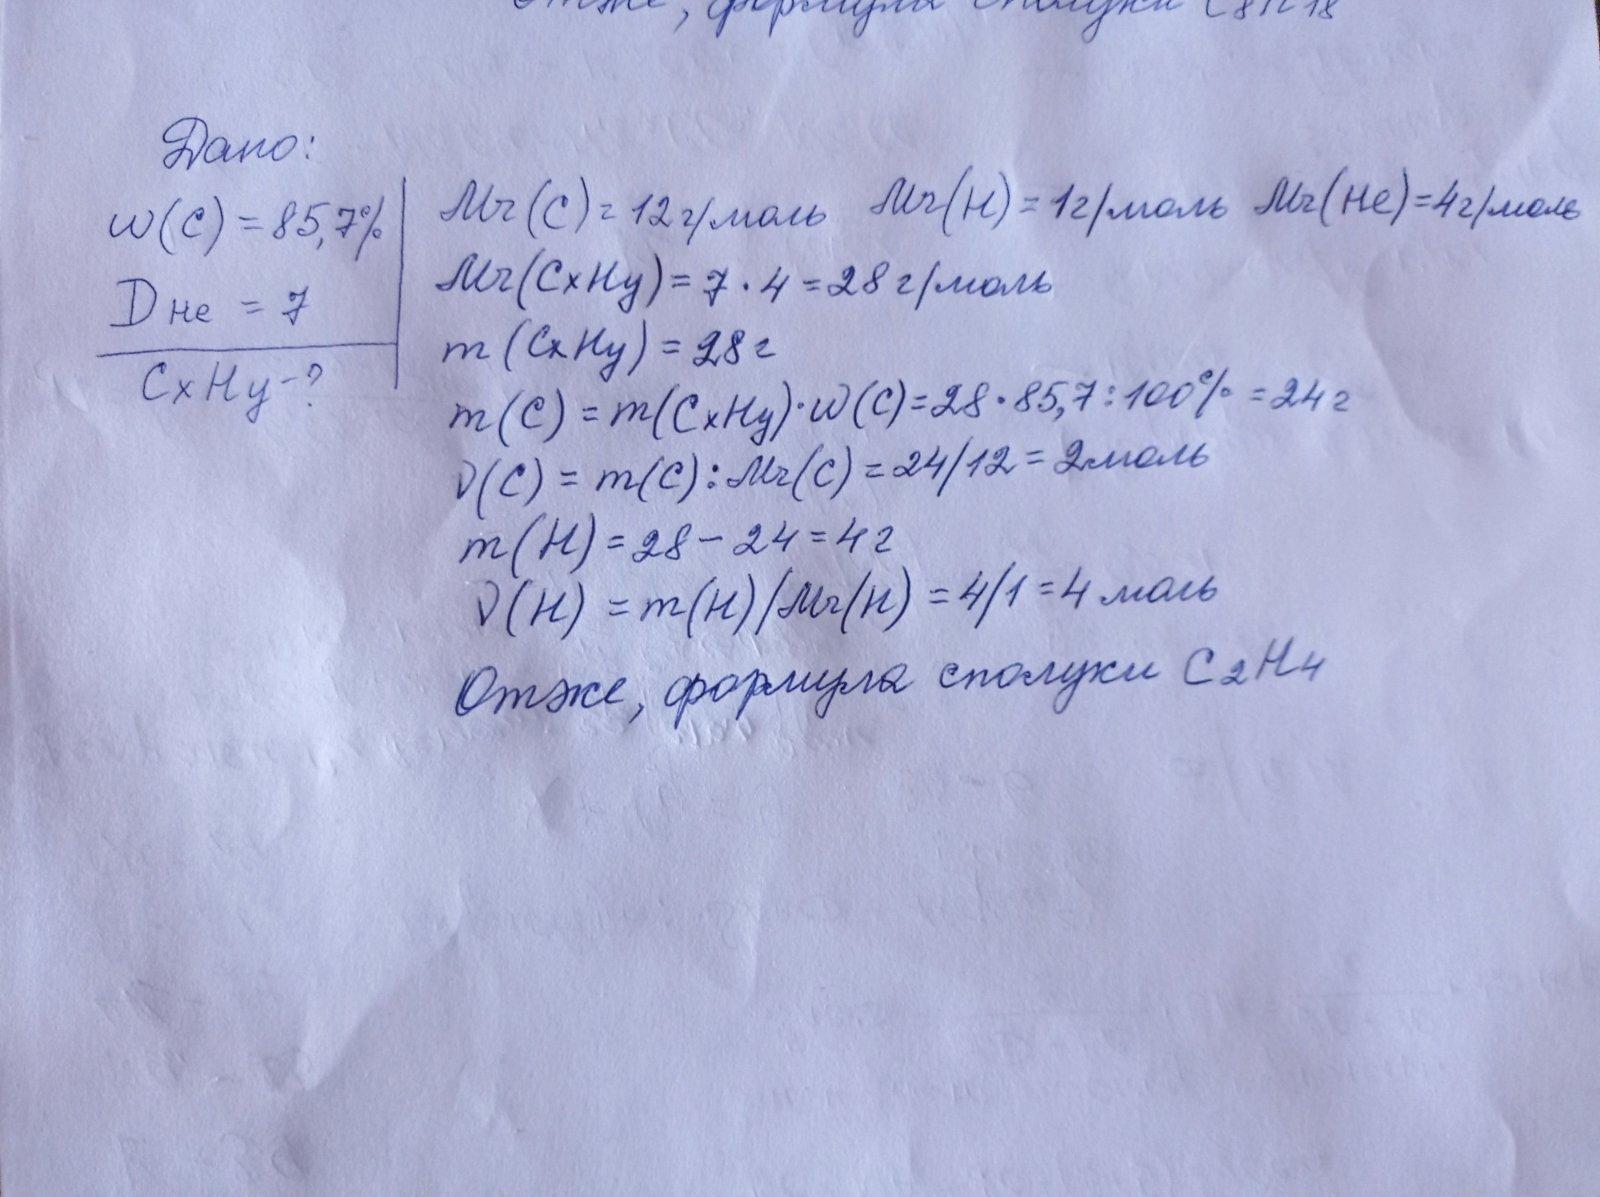 Отже, формула сполуки C8H18
Дано:
w(C) = 85,7%
DHe = 7
CxHy-?
Mr(C) = 12г/моль Mr(H) = 1г/моль Mr(He) = 4г/моль
Mr(CxHy) = 7 · 4 = 28 г/моль
m(CxHy) = 28г
m(C) = m(CxHy)·w(C) = 28·85,7:100% = 24г
ν(C) = m(C):Mr(C) = 24/12 = 2моль
m(H) = 28 - 24 = 4г
ν(H) = m(H)/Mr(H) = 4/1 = 4 моль
Отже, формула сполуки C2H4